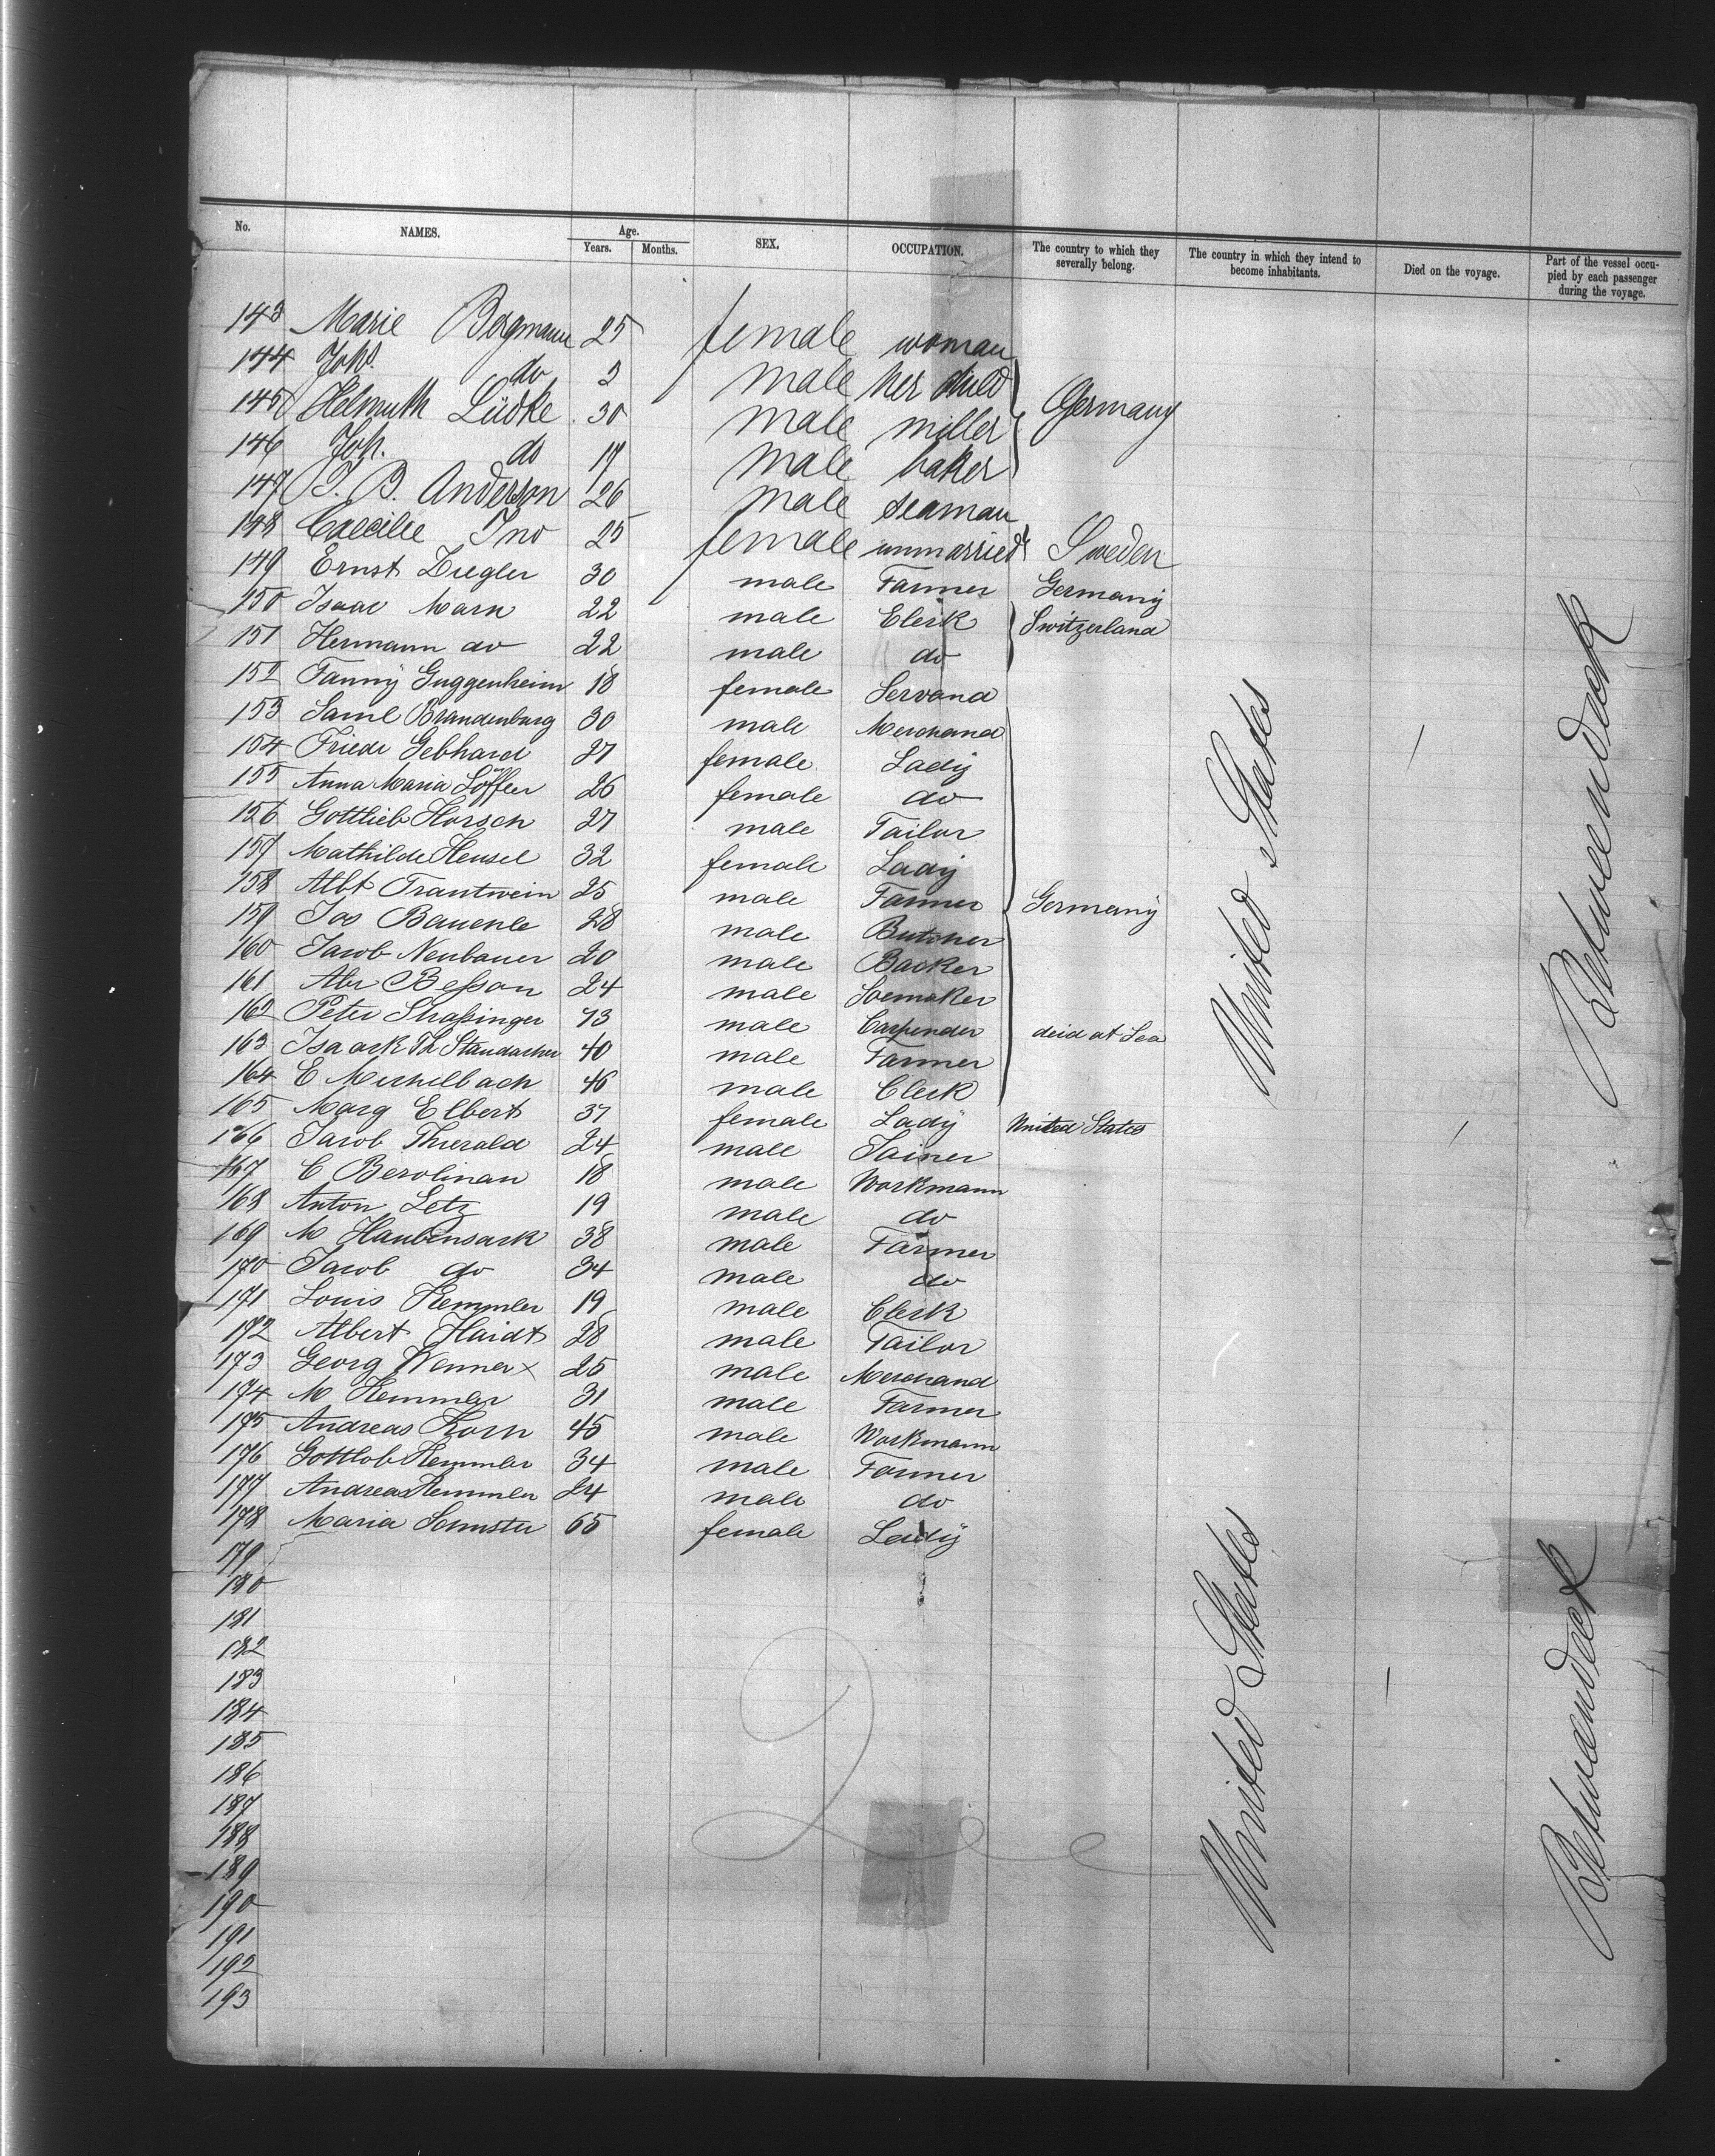 No. NAMES. Age. Years. Months. SEX. OCCUPATION. The country to which they severally belong. The country in which they intend to become inhabitants. Died on the voyage. Part of the vessel occu-pied by each passenger during the voyage.
143 Marie Bergmann 25 female woman
144 Joh. do 2 male her child
145 Helmuth Lüdke 30 male miller Germany
146 Joh. do 17 male baker
147 J. B. Anderson 26 male seaman
148 Caecilie Ino 25 female unmarried Sweden
149 Ernst Ziegler 30 male Farmer Germany
150 Isaac Marx 22 male Clerk Switzerland
151 Hermann do 22 male do
152 Fanny Guggenheim 18 female Servand
153 Saml Brandenburg 30 male Merchand
154 Friede Gebhard 27 female Lady
155 Anna Maria Löffler 26 female do
156 Gottlieb Horsch 27 male Tailor
157 Mathilde Hensel 32 female Lady
158 Albt Trautwein 25 male Farmer Germany
159 Jos Bauerle 28 male Butcher
160 Jacob Neubauer 20 male Backer
161 Abr Besson 24 male Soemaker
162 Peter Strassinger 43 male Carpender deid at Sea
163 Isaark Th Staudacher 40 male Farmer
164 E Mechelbach 46 male Clerk
165 Marg Elbert 37 female Lady United States
166 Jacob 24 male
167 C Berolinan 18 male Workmann
168 Anton Letz 19 male do
169 M Haubensack 38 male Farmer
170 Jacob do 34 male do
171 Louis Hemmler 19 male Clerk
172 Albert Haidt 28 male Tailor
173 Georg Wenner x 25 male Merchand
174 M Hemmler 31 male Farmer
175 Andreas Korn 45 male Workmann
176 Gottlob Hemmler 34 male Farmer
177 Andreas Hemmler 24 male do
178 Maria Schuster 65 female Lady
179
180
181
182
183
184
185
186
187
188
189
190
191
192
193
United States
United States
Betweendeck
Betweendeck